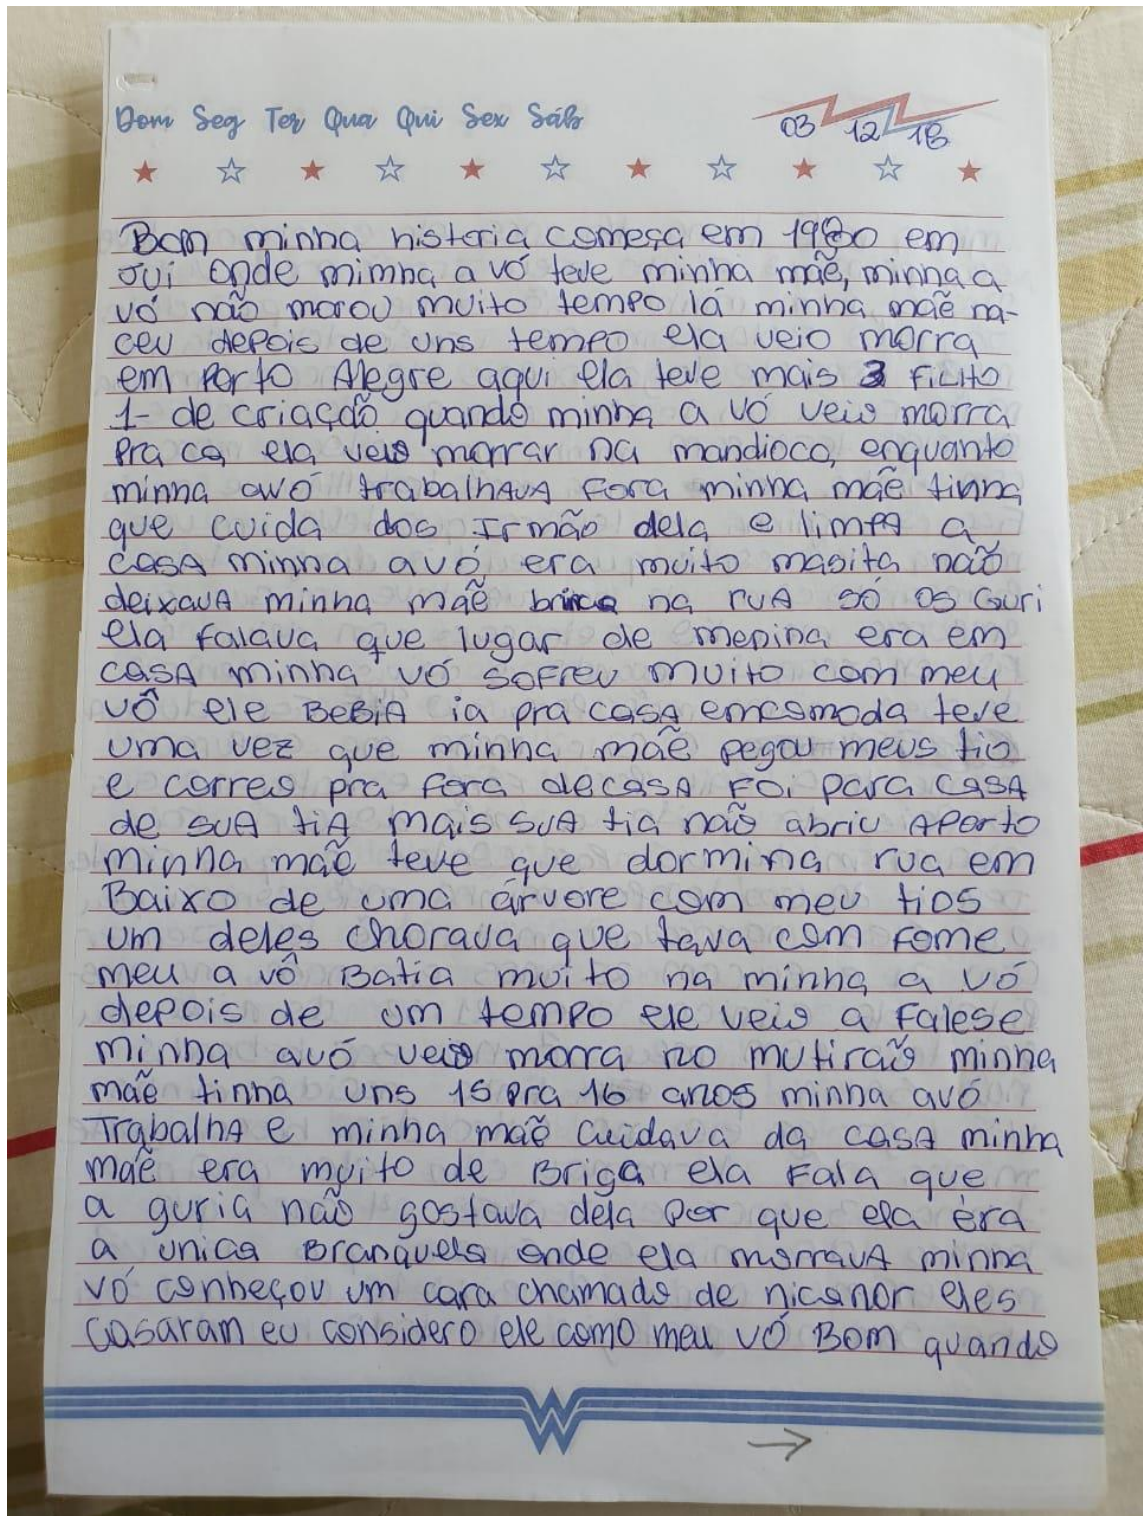 Dom Seg Ter Qua Qui Sex Sáb
03 12 18
Bom minha historia começa em 1980 em
ivi onde mimha a vó teve minha mãe, minha a
vó não morou muito tempo lá minha mãe na-
ceu depois de uns tempo ela veio morra
em Porto Alegre aqui ela teve mais 3 FiLHo
1- de criação quando minha a vó veio morra
pra ca ela veio morrar na mandioca, enquanto
minha avó trabalhAvA Fora minha mãe tinha
que cuida dos Irmão dela e limpA a
casA minha avó era muito masita não
deixavA minha mãe brinca na ruA só os Guri
ela Falava que lugar de menina era em
casA minha vó SoFreu muito com meu
vô ele BeBiA ia pra casA emcomoda teve
uma vez que minha mãe pegou meus tio
e correo pra fora decasA Foi para casA
de suA tiA mais suA tia não abriu Aporto
minha mãe teve que dormina rua em
Baixo de uma árvore com meu tios
um deles chorava que tava com Fome
meu a vô Batia muito na minha a vó
depois de um tempo ele veio a Falese
minha avó veio morra no mutirão minha
mãe tinha uns 15 pra 16 anos minha avó
TrabalhA e minha mãe cuidava da casA minha
mãe era muito de Briga ela Fala que
a guria não gostava dela Por que ela era
a unica Branquela onde ela morravA minha
vó conheçou um cara chamado de nicanor eles
casaram eu considero ele como meu vó Bom quando
W